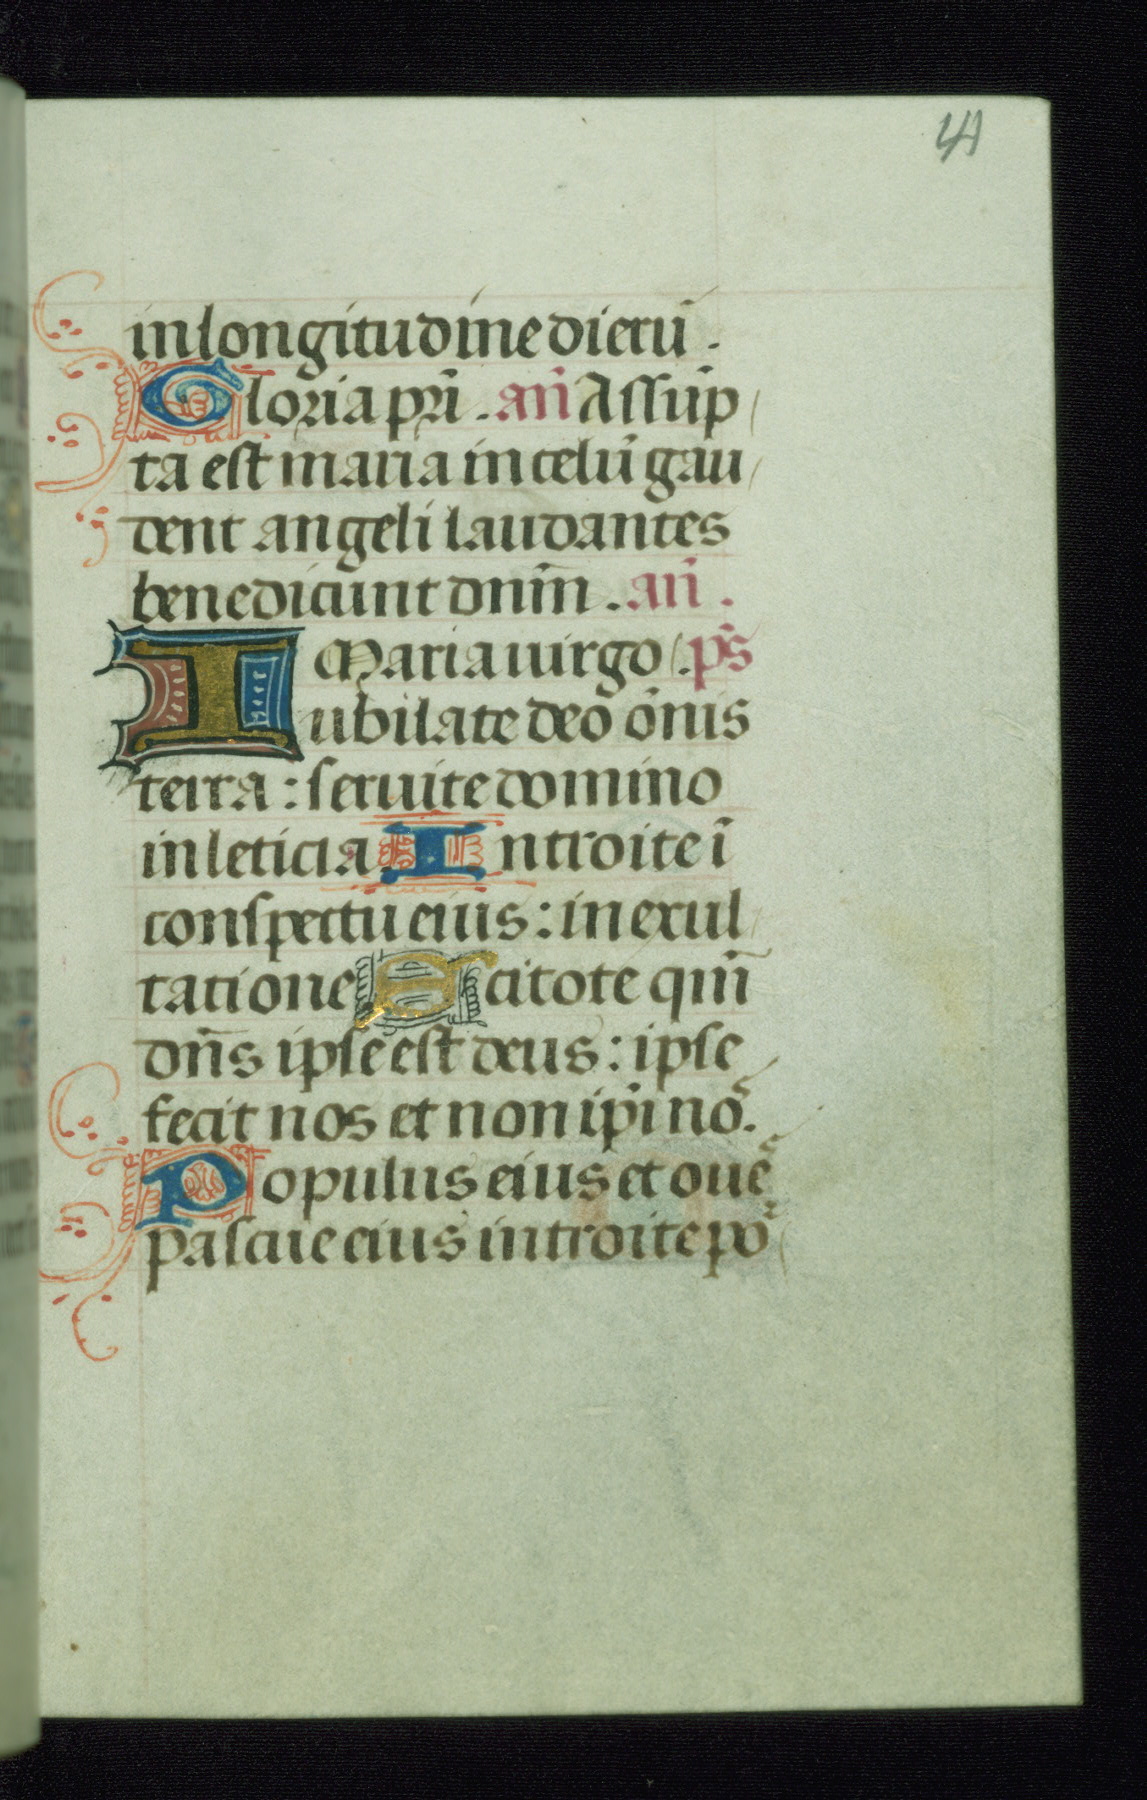 41
in longitudine dierū.
Gloria pr̄i. an̄ Assūp
ta est maria in celū gau
dent angeli laudantes
benedicunt dn̄m. an̄.
Maria uirgo. ps̄
Iubilate deo om̄nis
terra: seruite domino
in leticia Introite ī
conspectu eius: in exul
tatione Scitote qm̄
dn̄s ipse est deus: ipse
fecit nos et non ip̄i nos.
Populus eius et oues
pascue eius introite po